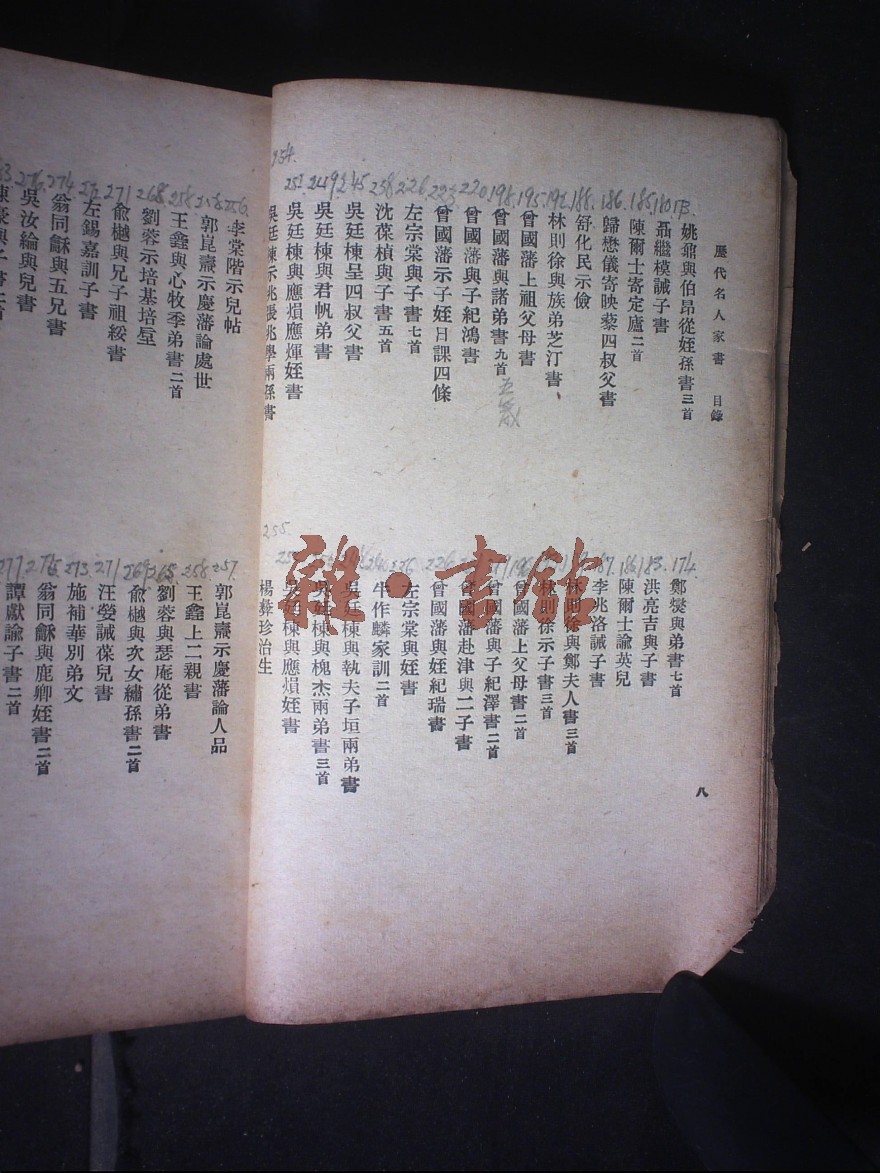 歷代名人家書 目錄
八
173. 姚鼐與伯昂從姪孫書三首
180 聶繼模誡子書
185 陳爾士寄定廬二首
186. 歸懋儀寄映藜四叔父書
188. 舒化民示儉
林則徐與族弟芝汀書
195. 曾國藩上祖父母書
198. 曾國藩與諸弟書九首
220 曾國藩與子紀鴻書
223. 曾國藩示子姪日課四條
226. 左宗棠與子書七首
238 沈葆楨與子書五首
245 吳廷棟呈四叔父書
249 吳廷棟與君帆弟書
252 吳廷棟與應熉應煇姪書
254. 吳廷棟示兆張兆學兩孫書
174. 鄭燮與弟書七首
183. 洪亮吉與子書
186 陳爾士諭英兒
187. 李兆洛誡子書
林則徐與鄭夫人書三首
林則徐示子書三首
曾國藩上父母書二首
曾國藩與子紀澤書二首
曾國藩赴津與二子書
226 曾國藩與姪紀瑞書
左宗棠與姪書
牛作麟家訓二首
吳廷棟與執夫子垣兩弟書
吳廷棟與槐杰兩弟書三首
吳廷棟與應熉姪書
255. 楊彝珍治生
256. 李棠階示兒帖
郭崑燾示慶藩論處世
258 王鑫與心牧季弟書二首
268. 劉蓉示培基培垕
271 俞樾與兄子祖綏書
左錫嘉訓子書
274. 翁同龢與五兄書
276. 吳汝綸與兒書
257. 郭崑燾示慶藩論人品
258 王鑫上二親書
265. 劉蓉與瑟庵從弟書
269 俞樾與次女繡孫書二首
271 汪瑩誡葆兒書
273. 施補華別弟文
275 翁同龢與鹿卿姪書二首
277. 譚獻諭子書二首